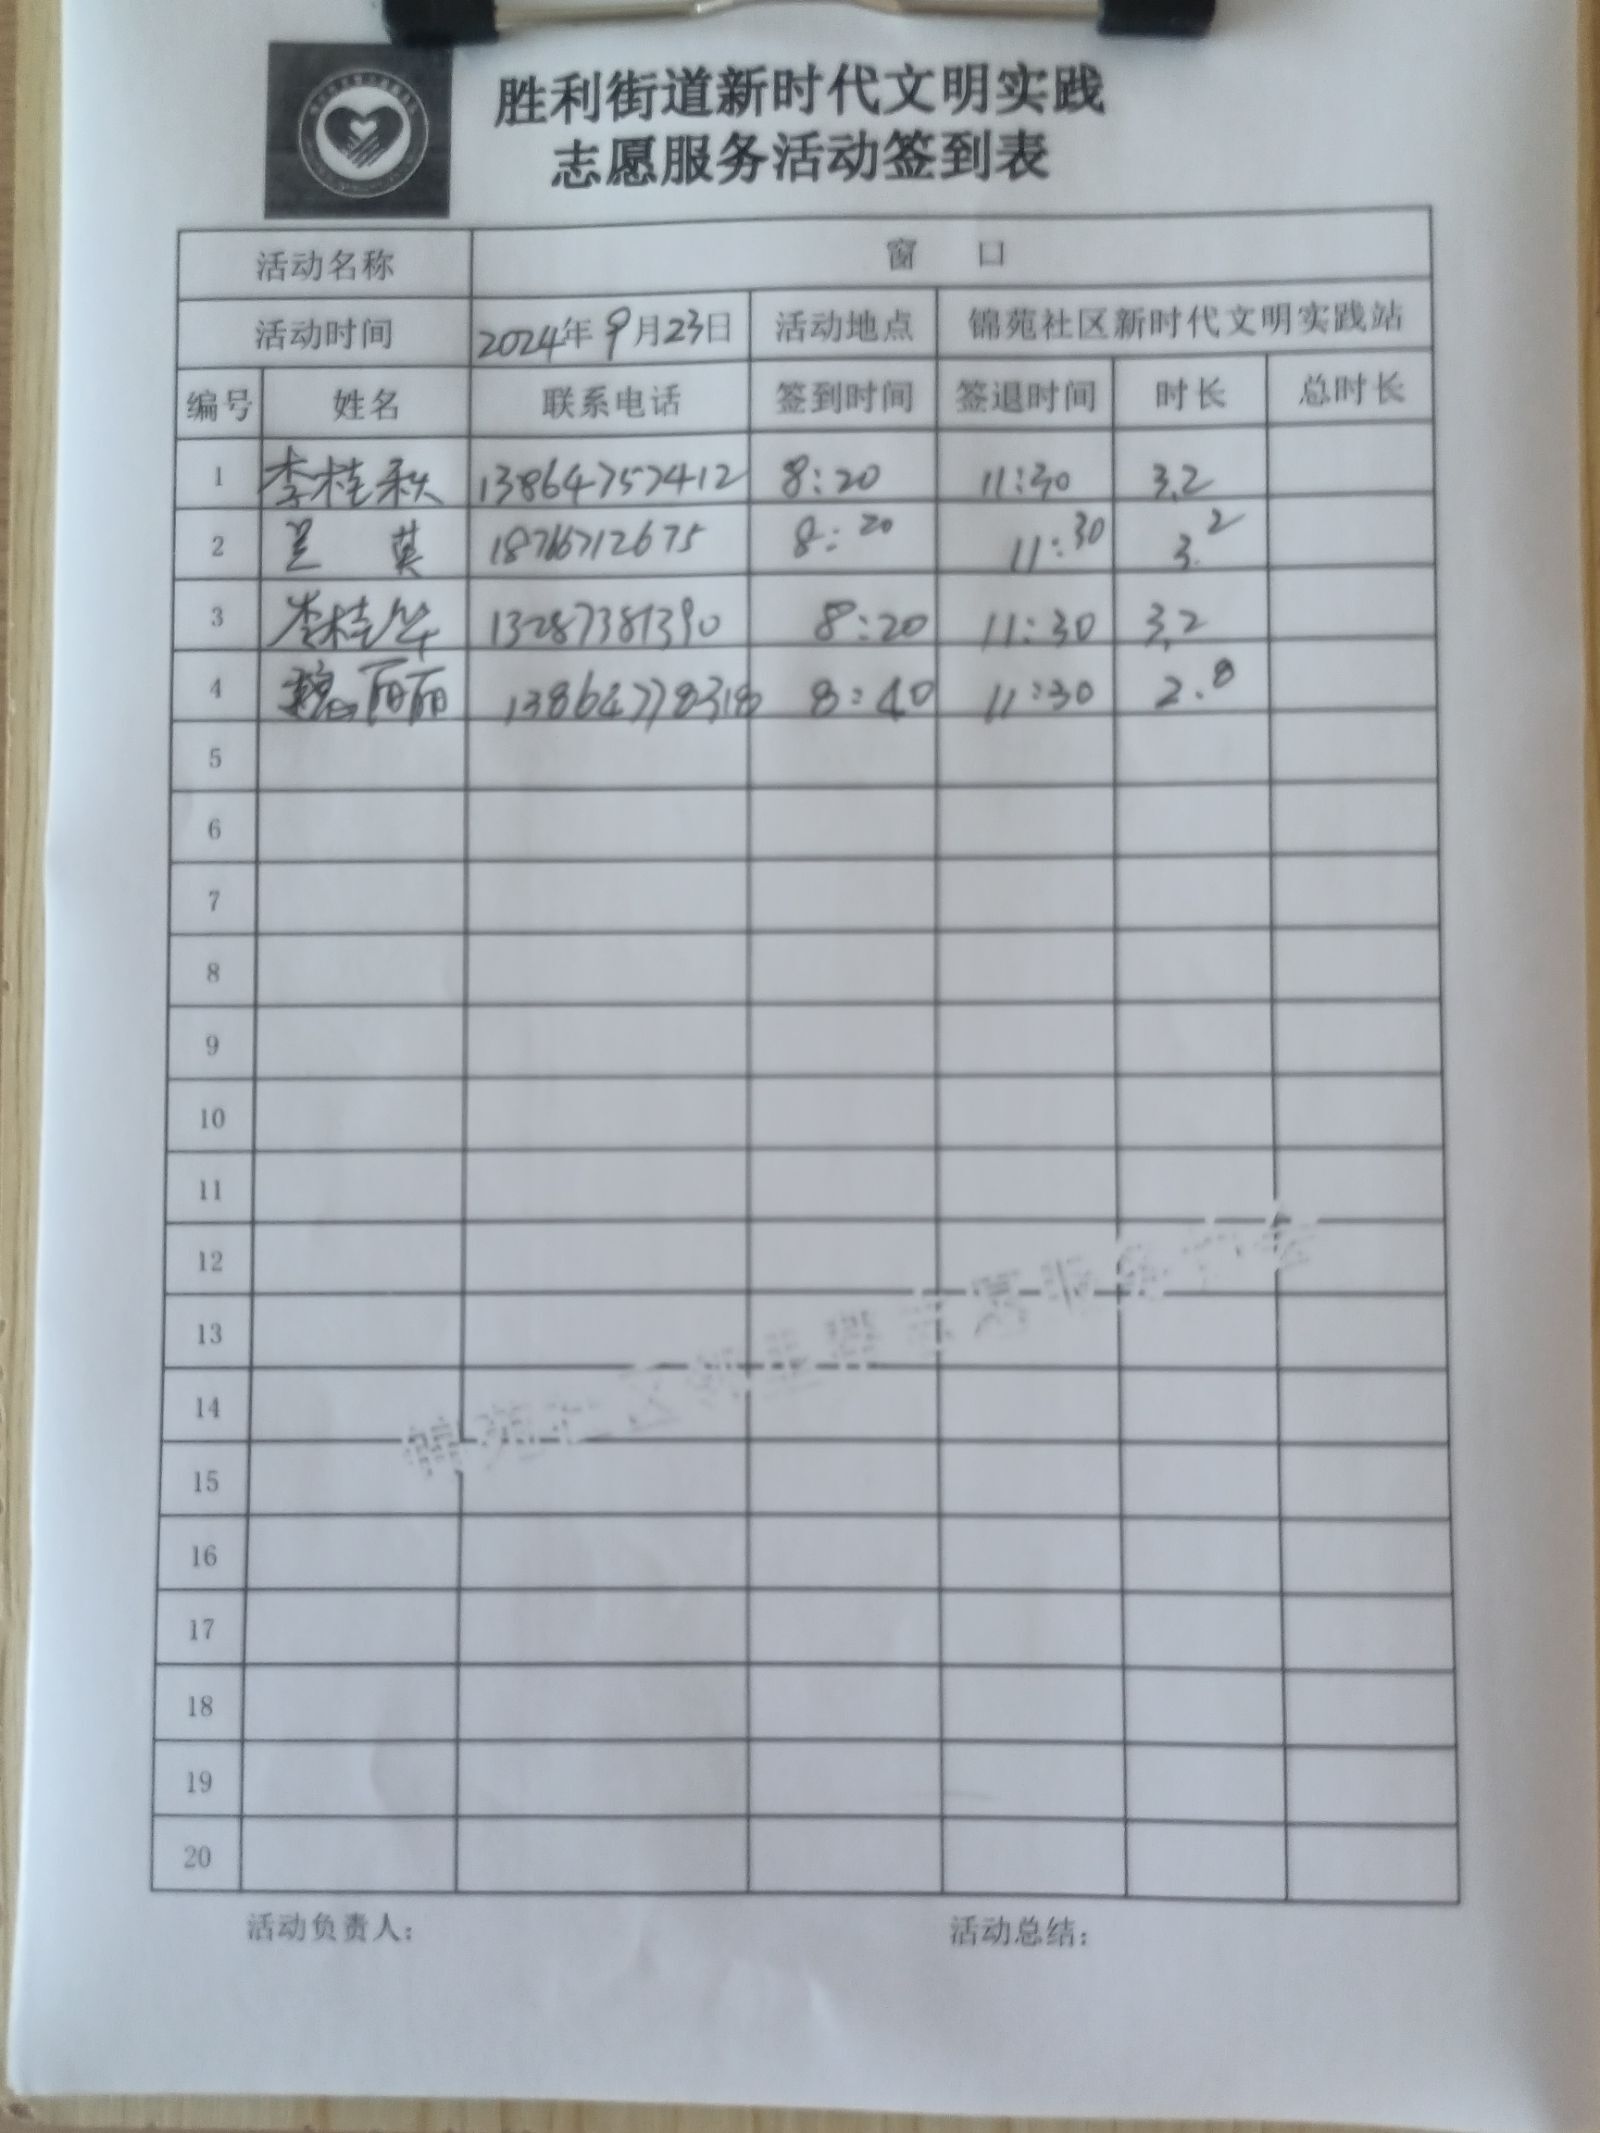 胜利街道新时代文明实践
志愿服务活动签到表
活动名称 窗 口
活动时间 2024年9月23日 活动地点 锦苑社区新时代文明实践站
编号 姓名 联系电话 签到时间 签退时间 时长 总时长
1 李桂秋 13864757412 8:20 11:30 3.2
2 兰英 18766712675 8:20 11:30 3.2
3 李桂华 13287381390 8:20 11:30 3.2
4 魏丽丽 13864778318 8:40 11:30 2.8
5
6
7
8
9
10
11
12
13
14
15
16
17
18
19
20
活动负责人： 活动总结：